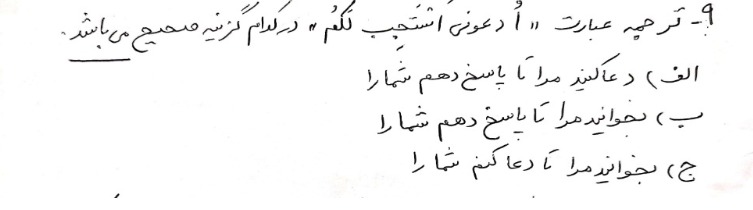 ۹- ترجمه عبارت «اُدعونی اَستَجِب لَکُم» در کدام گزینه صحیح می باشد.
الف) دعا کنید مرا تا پاسخ دهم شما را
ب) بخوانید مرا تا پاسخ دهم شما را
ج) بخوانید مرا تا دعا کنم شما را